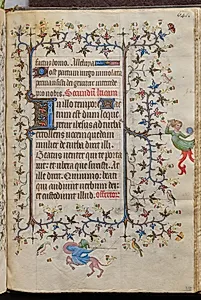 factus homo. Alleluya
Post partum virgo inviolata
permansisti dei genitrix intercede
pro nobis. Secundum lucam
In illo tempore: fac
tum est dum loque
retur ihesus ad turbas
extollens vocem quedam
mulier de turba dixit illi.
Beatus venter qui te porta
vit: et ubera que suxisti. At
ille dixit. Quinimmo bea
ti qui audiunt verbum dei:
et custodiunt illud. offertor